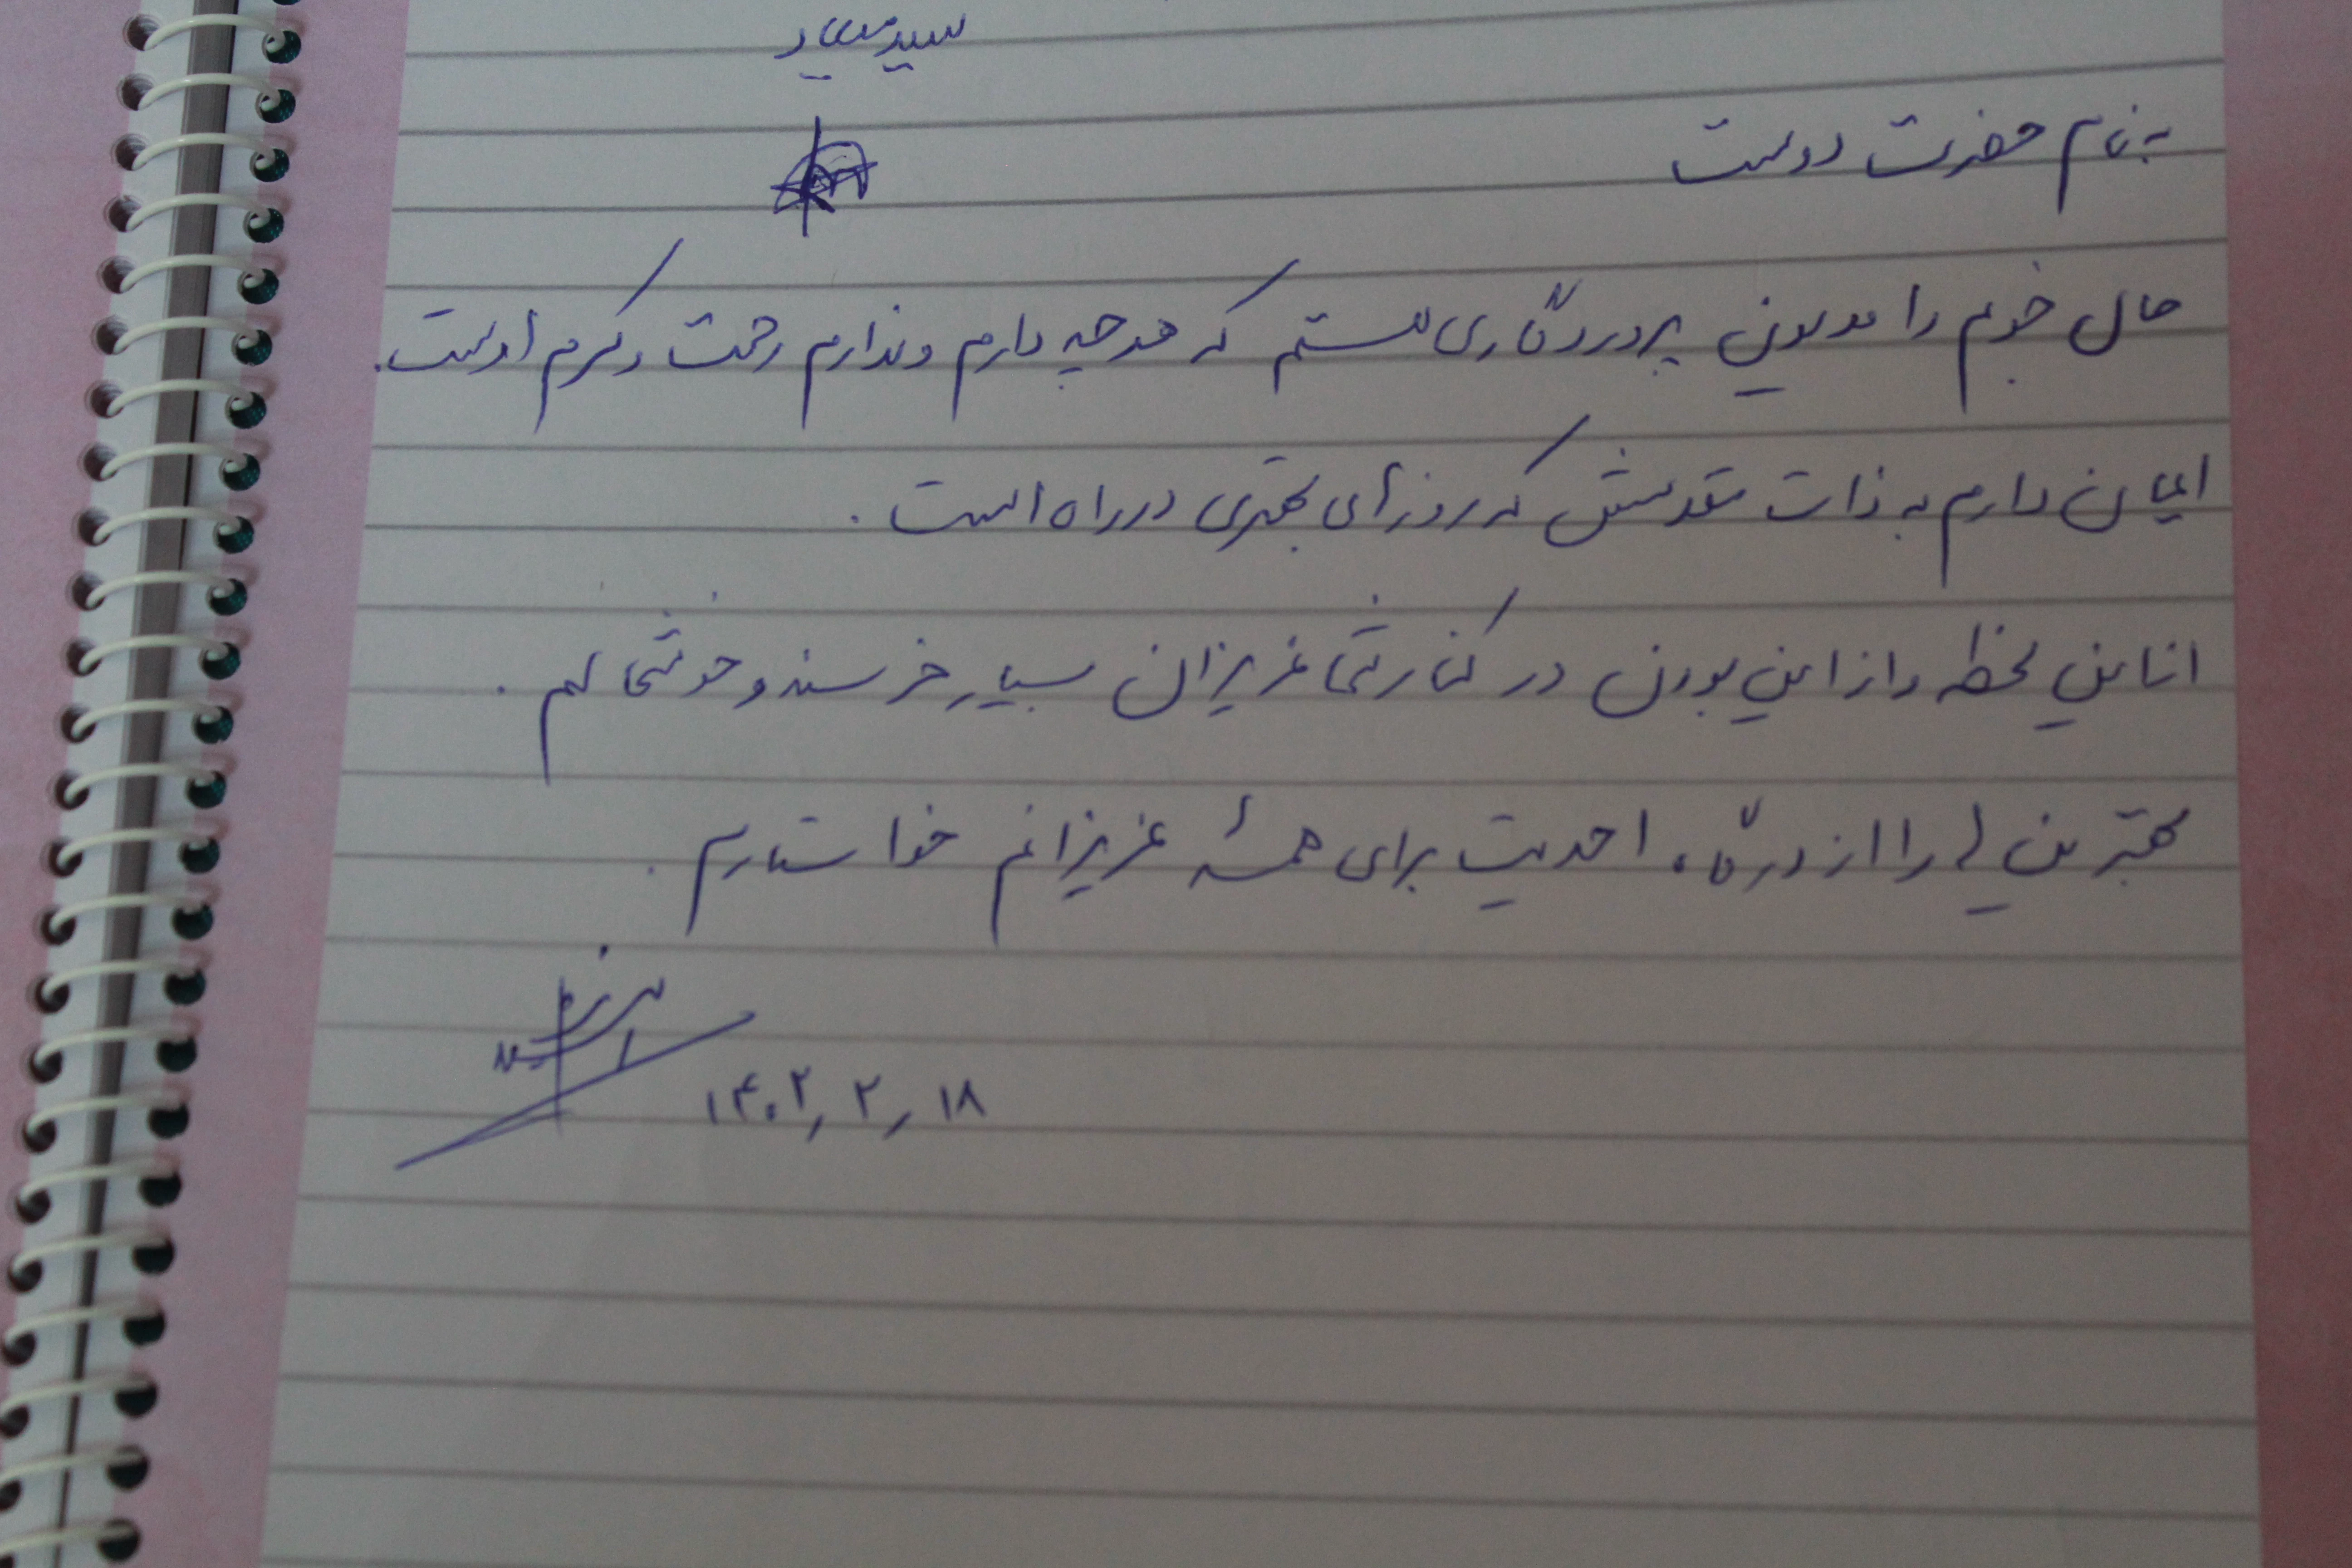 به نام حضرت دوست
حال خوبم را مدیون پروردگاری هستم که هرچه دارم و ندارم رحمت و کرم اوست.
ایمان دارم به ذات مقدسش که روزهای بهتری در راه است.
از این لحظه و از این بودن در کنار شما عزیزان بسیار خرسند و خوشحالم.
بهترین ها را از درگاه احدیت برای همه عزیزانم خواستارم.
۱۴۰۲٫۲٫۱۸